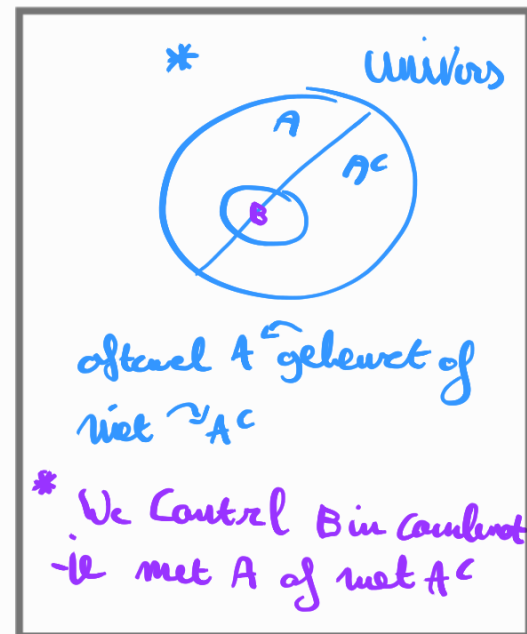 * Univers
A
A^c
B
oftewel A gebeurt of
niet A^c
* We B in combinat
-ie met A of met A^c